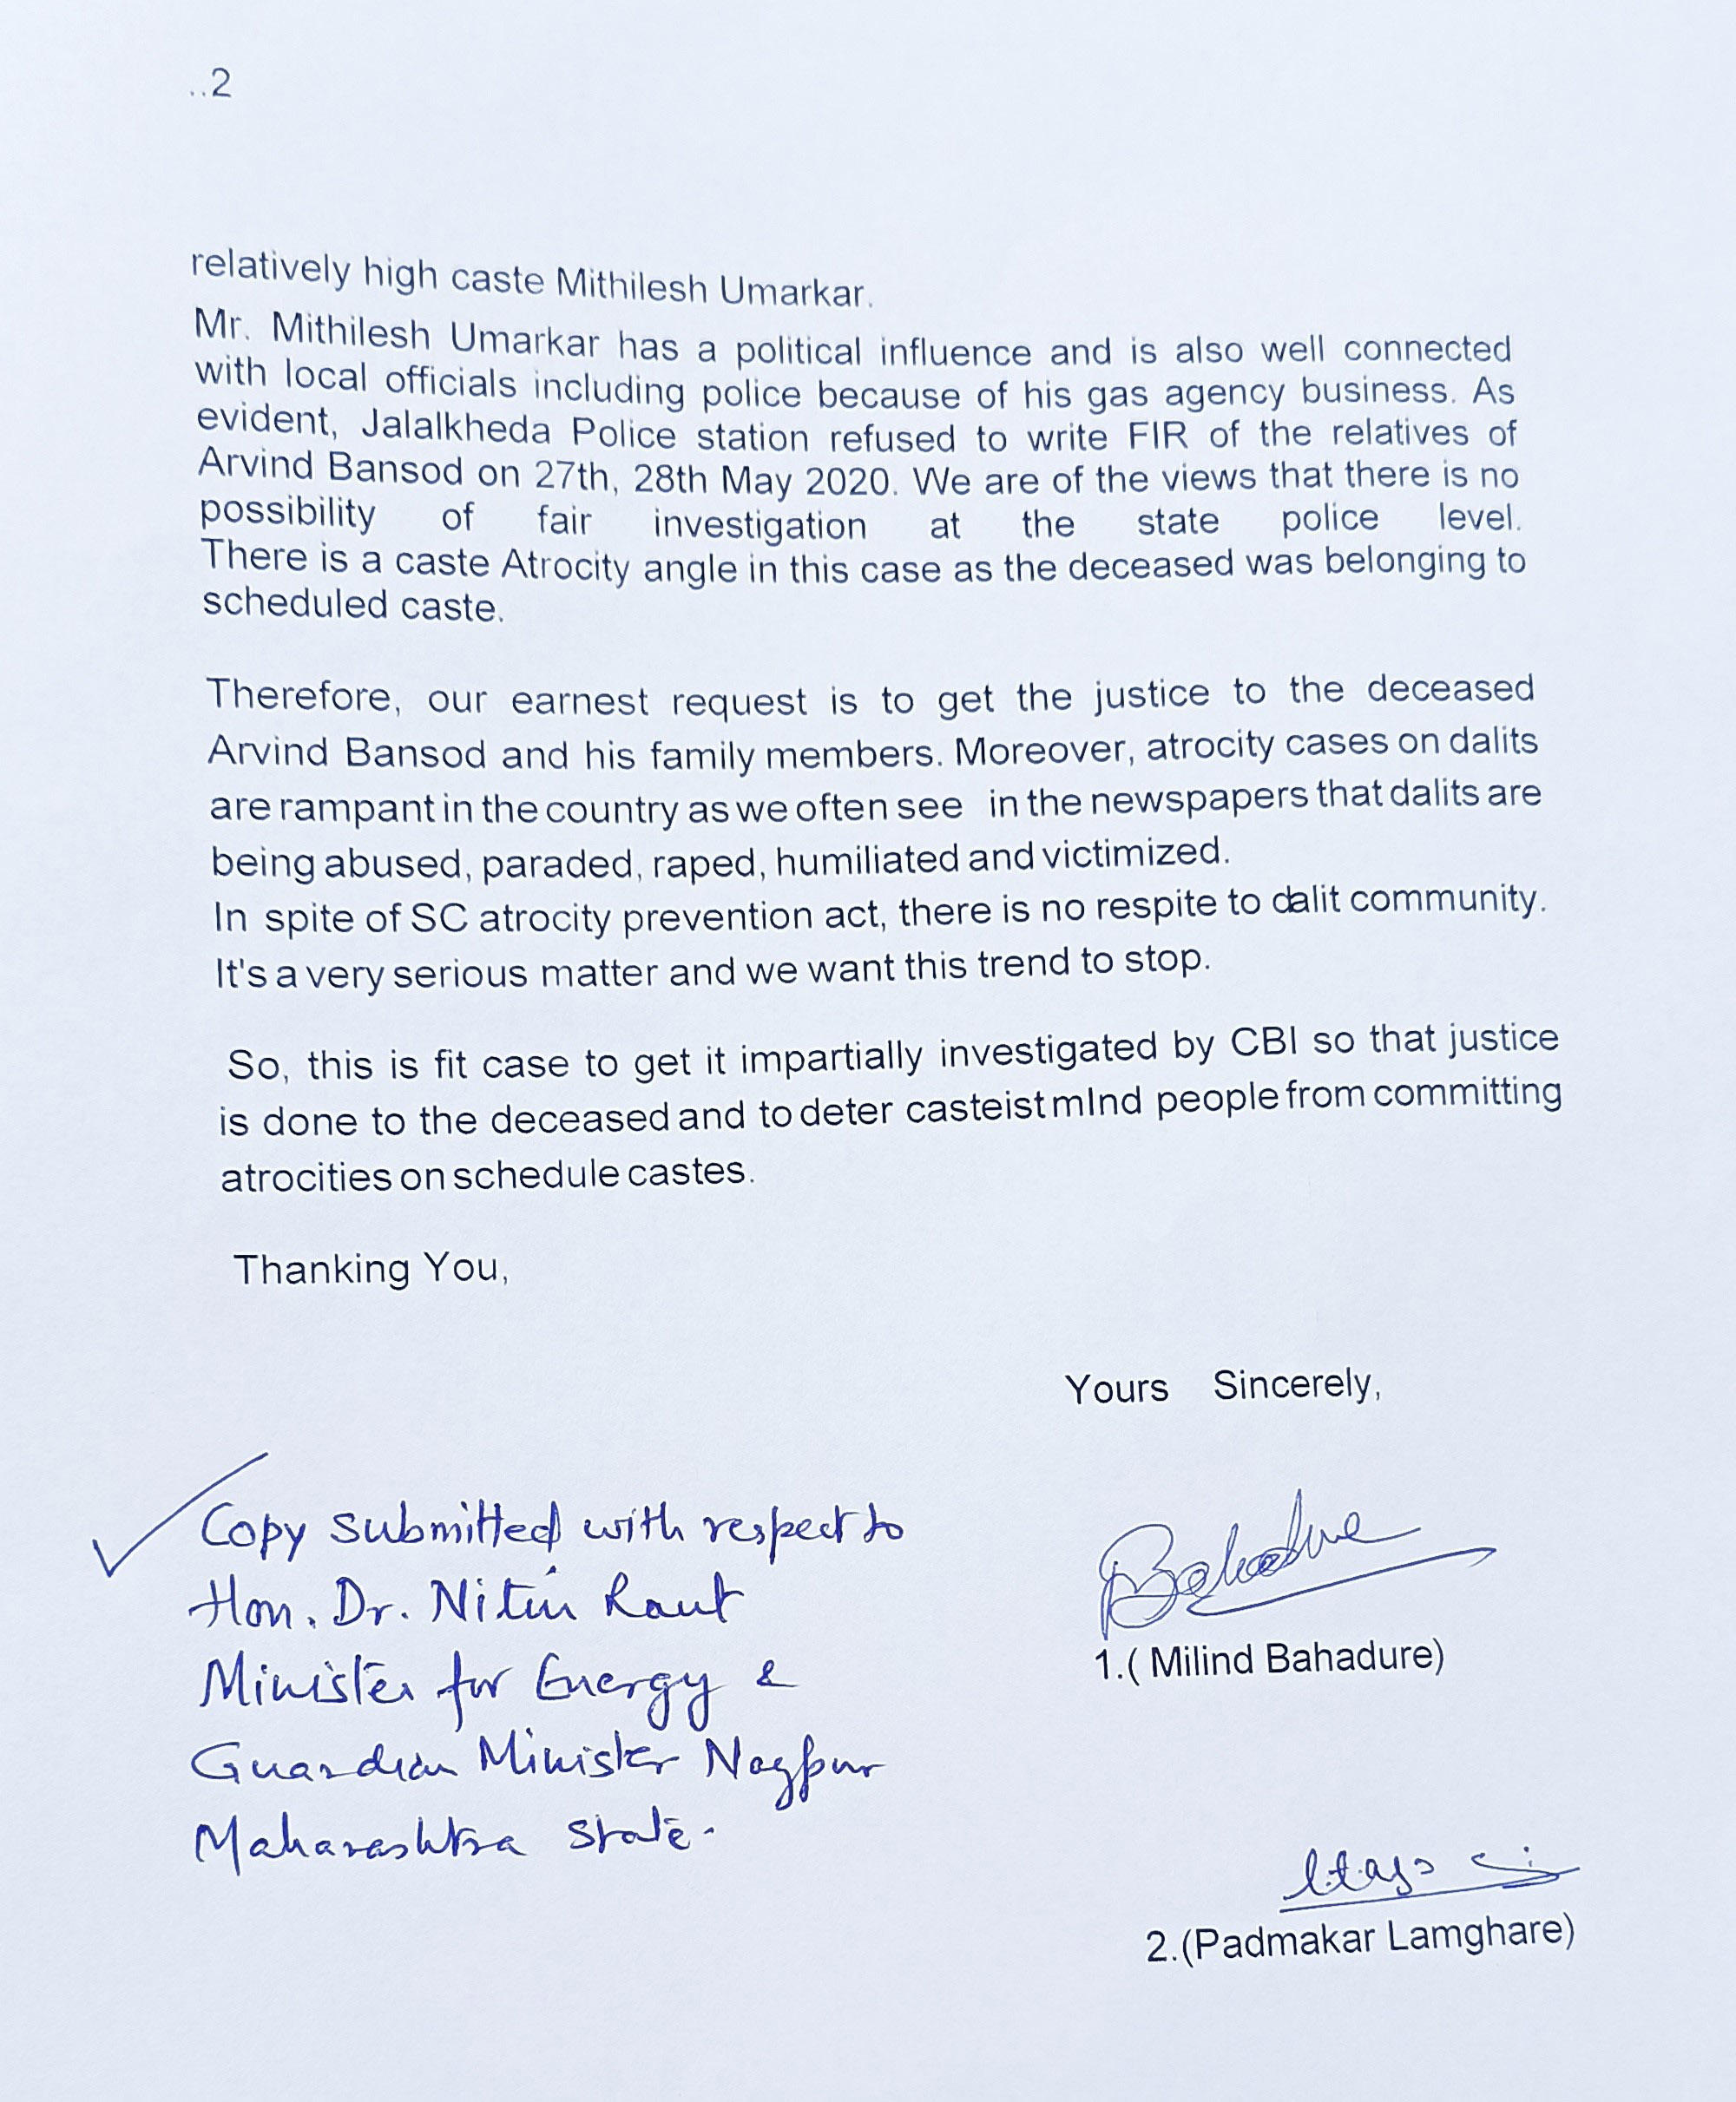 ..2
relatively high caste Mithilesh Umarkar.
Mr. Mithilesh Umarkar has a political influence and is also well connected
with local officials including police because of his gas agency business. As
evident, Jalalkheda Police station refused to write FIR of the relatives of
Arvind Bansod on 27th, 28th May 2020. We are of the views that there is no
possibility of fair investigation at the state police level.
There is a caste Atrocity angle in this case as the deceased was belonging to
scheduled caste.
Therefore, our earnest request is to get the justice to the deceased
Arvind Bansod and his family members. Moreover, atrocity cases on dalits
are rampant in the country as we often see in the newspapers that dalits are
being abused, paraded, raped, humiliated and victimized.
In spite of SC atrocity prevention act, there is no respite to dalit community.
It's a very serious matter and we want this trend to stop.
So, this is fit case to get it impartially investigated by CBI so that justice
is done to the deceased and to deter casteist mInd people from committing
atrocities on schedule castes.
Thanking You,
Yours Sincerely,
Copy submitted with respect to
Hon. Dr. Nitin Raut
Minister for Energy &
Guardian Minister Nagpur
Maharashtra State.
Bahadure
1.( Milind Bahadure)
2.(Padmakar Lamghare)